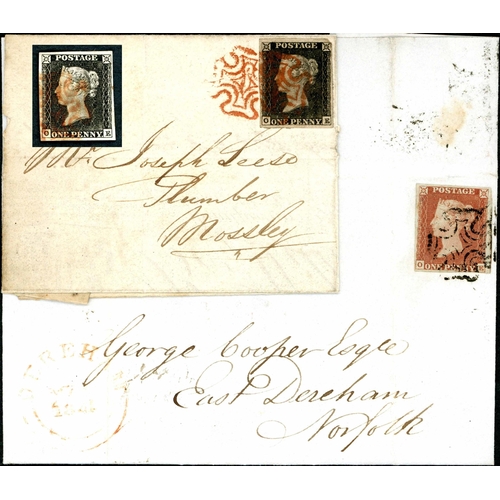 POSTAGE
ONE PENNY
O E
POSTAGE
ONE PENNY
O E
Mr. Joseph Leese
Plumber
Mossley
POSTAGE
O ONE PENNY
DEREH
George Cooper Esqre
East Dereham
Norfolk